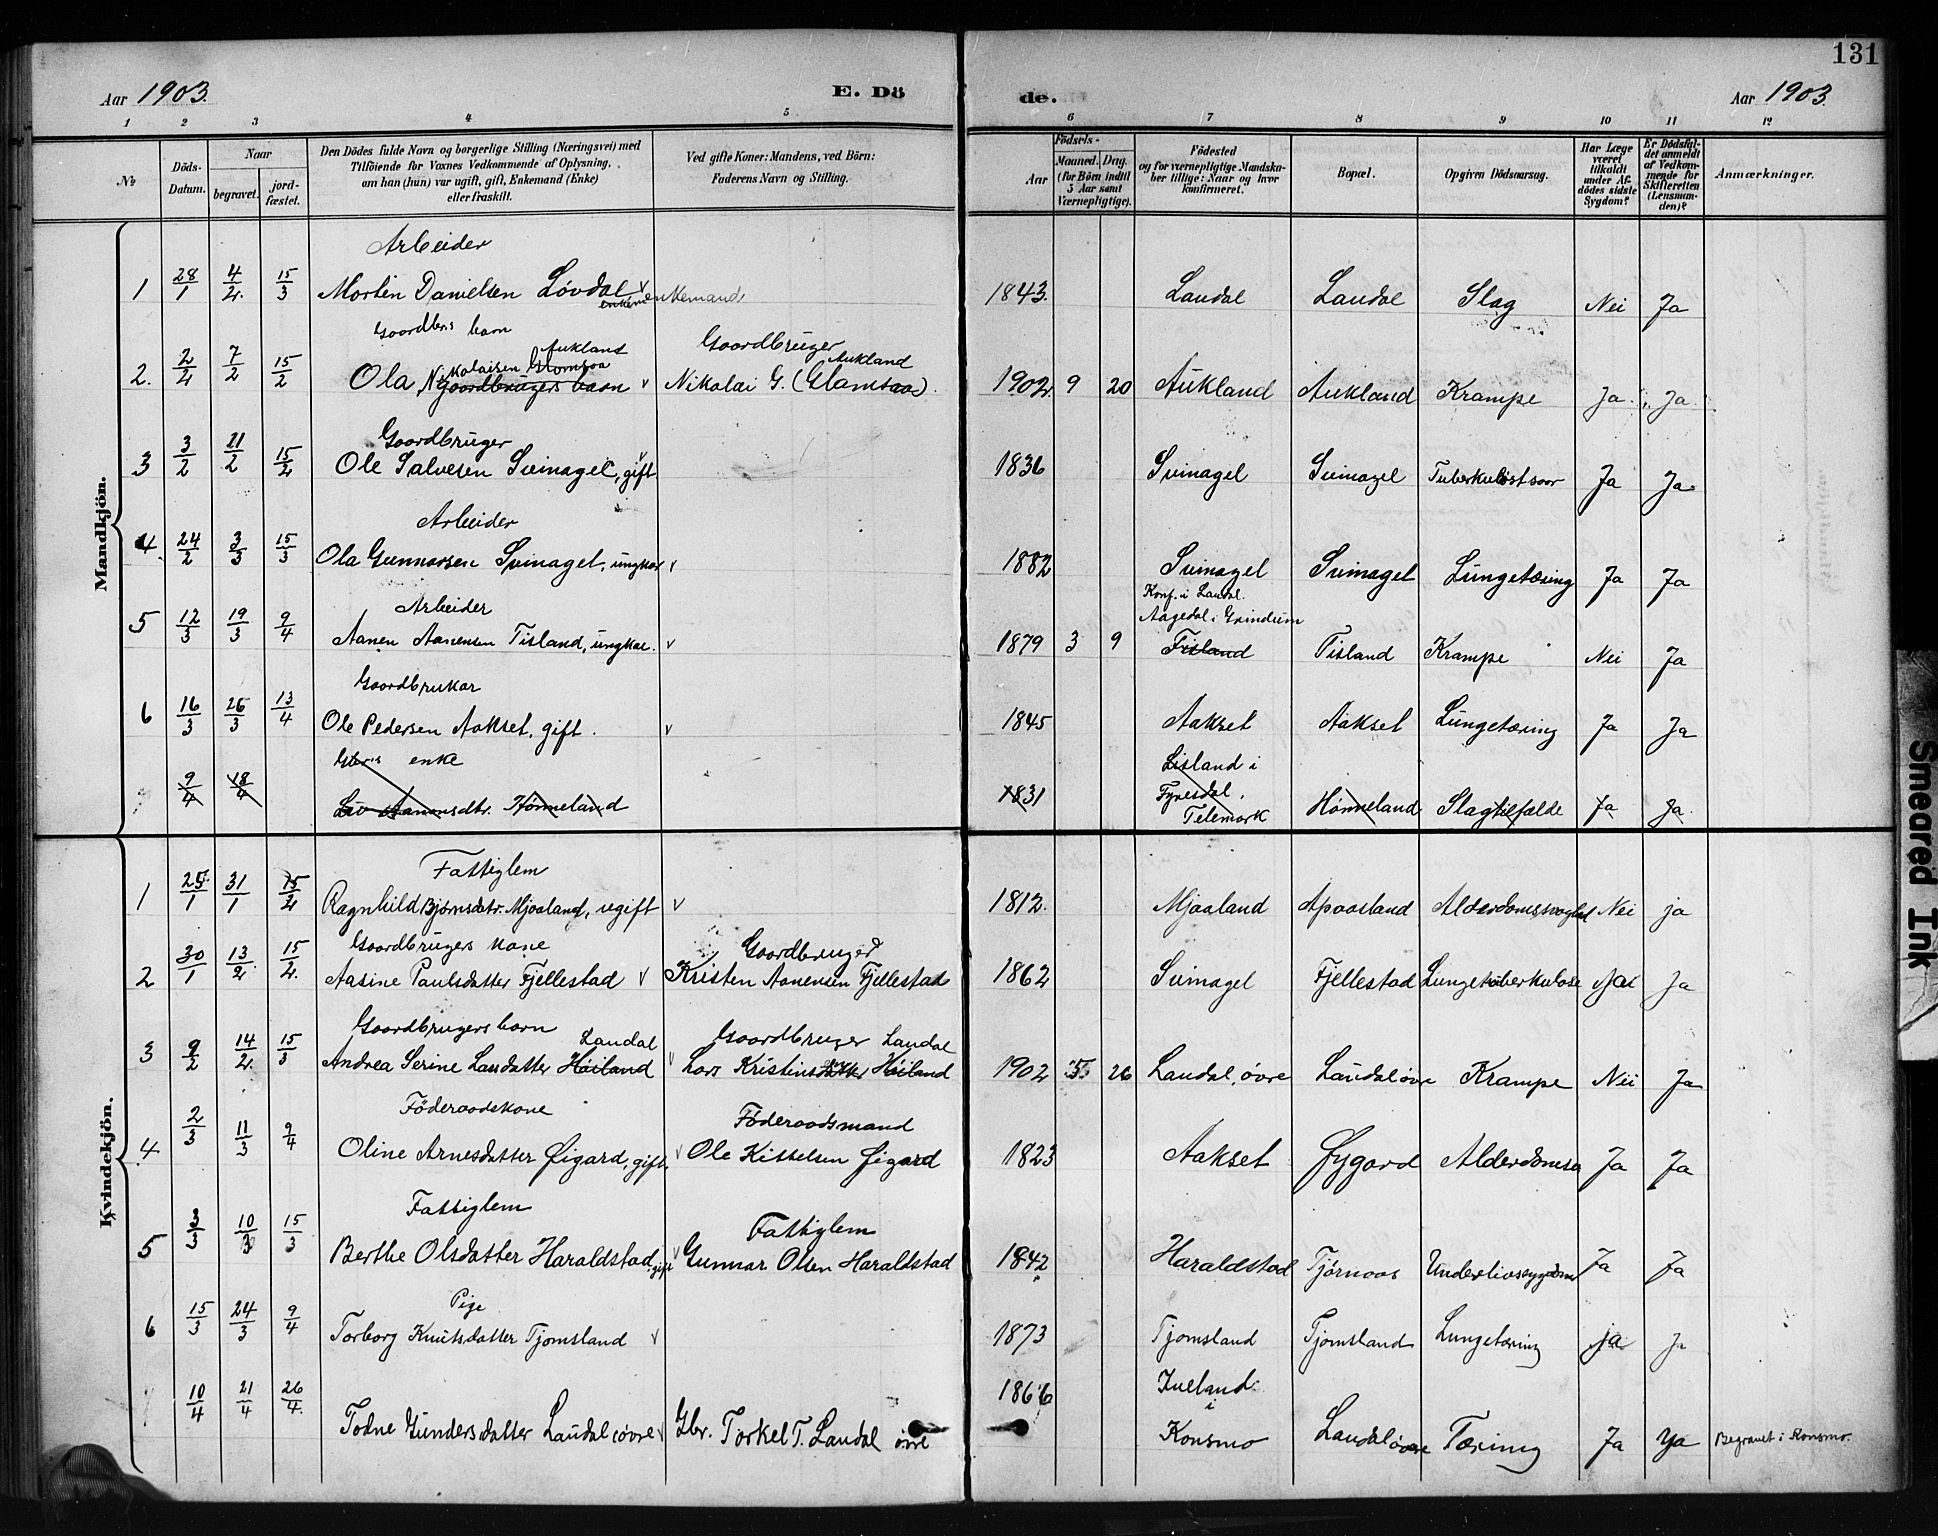 131
Aar 1903.
E. Dö
de.
Aar 1903.
1 2 3 4 5 6 7 8 9 10 11 12
№
Döds-Datum.
Naar
begravet.
jordfæstet.
Den Dödes fulde Navn og borgerlige Stilling (Næringsvei) med
Tilföiende for Voxnes Vedkommende af Oplysning,
om han (hun) var ugift, gift, Enkemand (Enke)
eller fraskilt.
Ved gifte Koner: Mandens, ved Börn:
Faderens Navn og Stilling.
Födsels-
Aar
Maaned. Dag.
(for Börn indtil
5 Aar samt
Værnepligtige).
Födested
og for værnepligtige Mandska-
ber tillige: Naar og hvor
konfirmeret.
Bopæl.
Opgiven Dödsaarsag.
Har Læge
været
tilkaldt
under Af-
dödes sidste
Sygdom?
Er Dödsfal-
det anmeldt
af Vedkom-
mende for
Skifteretten
(Lensman-
den)?
Anmærkninger.
Mandkjön.
Arbeider
1 28/1 4/2. 15/3 Morten Danielsen Løvdal enkemand 1843. Laudal Laudal Slag Nei Ja
Gaardbrs barn
Aukland
Gaardbruger
Nikolaisen Glomsaa
Aukland
2. 2/2 7/2 15/2 Ola Gaardbrugers barn Nikolai G. (Glamsaa). 1902 9 20 Aukland Aukland Krampe Ja Ja
Gaardbruger
3 3/2 21/2 15/2 Ole Salvesen Svinagel, gift 1836 Svinagel Svinagel Tuberkuløst saar Ja Ja
Arbeider
4 24/2 3/3 15/3 Ola Gunnarsen Svinagel, ungkar 1882 Svinagel Svinagel Lungetæring Ja Ja
Konf. i Laudal.
Arbeider
Aagedal i Grindum
5 12/3 19/3 9/4 Aanen Aanensen Tisland, ungkar. 1879 3 9 Tisland Tisland Krampe Nei Ja
Gaardbrukar
6 16/3 26/3 13/4 Ole Pedersen Aakset, gift. 1845 Aakset Aakset Lungetæring Ja Ja
Gbr.s enke
Lisland i
9/4 18/4 Liv Aanensdtr. Hønneland 1831 Fyresdal, Hønneland Slagtilfælde Ja Ja
Telemark
Kvindekjön.
Fattiglem
1 25/1 31/1 15/2 Ragnhild Bjørnsdatr. Mjaaland, ugift 1812. Mjaaland Apaasland Alderdomssvaghed Nei ja
Gaardbrugers kone
Gaardbruger
2 30/1 13/2 15/2. Aasine Paulsdatter Fjellestad Kristen Aanensen Fjellestad 1862 Svinagel Fjellestad Lungetuberkulose Ja Ja
Gaardbrugers barn
Laudal
Gaardbruger Laudal
3 9/2 14/2. 15/3 Andrea Serine Larsdatter Høiland Lars Kristensen Høiland 1902 5 26 Laudal, øvre Laudal øvr Krampe Nei Ja
Föderaadskone
Föderaadsmand
4 2/3 11/3 9/4 Oline Arnesdatter Øigard, gift, Ole Kittelsen Øigard 1823 Aakset Øygard Alderdomsv Ja Ja
Fattiglem
Fattiglem
5 3/3 10/3 15/3 Berthe Olsdatter Haraldstad, gift Gunnar Olsen Haraldstad 1842 Haraldstad Tjørnaas Underlivssygdom Ja Ja
Pige
6 15/3 24/3 9/4 Torborg Knutsdatter Tjomsland 1873 Tjomsland Tjomsland Lungetæring ja Ja
Iueland
i
7 10/4 21/4 26/4. Todne Gundersdatter Laudal, øvre Gbr. Torkel T. Laudal øvre 1866 Konsmo Laudal øvre Tæring Ja Ja Begravet i Konsmo.
Smeared Ink